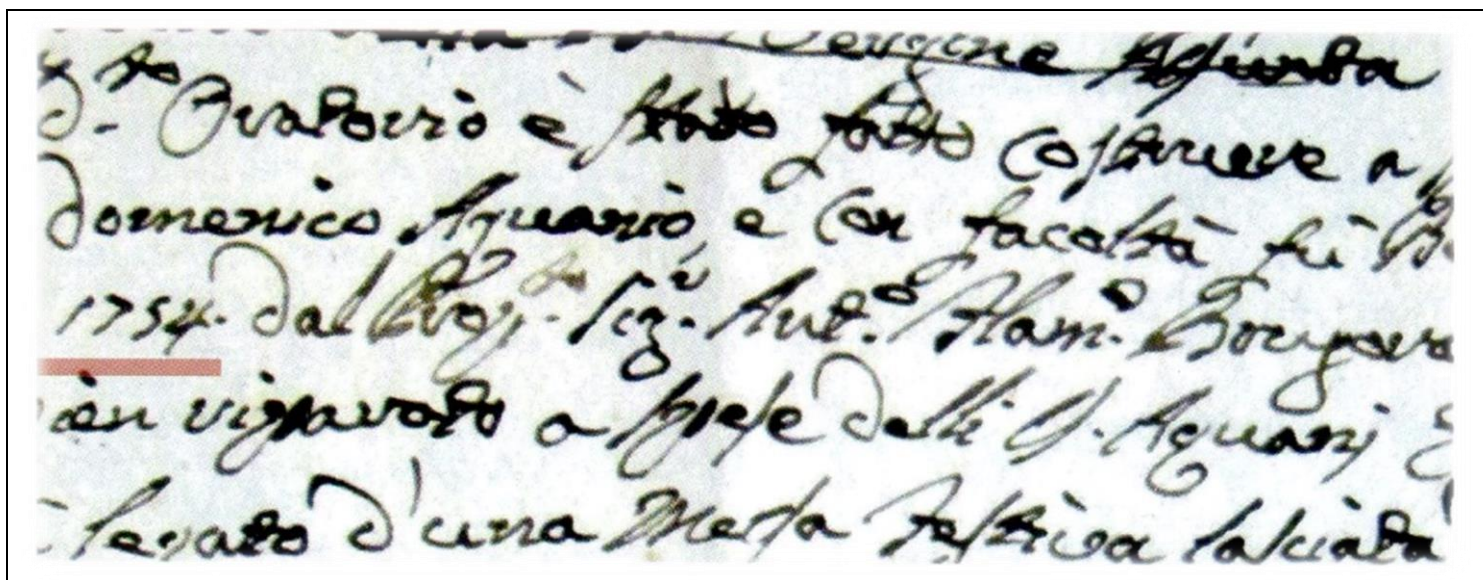 Vergine Assunta
d.to Oratorio è stato fatto costruere a
domenico Aquario, e con facoltà fù
1754. dal Sig.r Ant.o Flam.o
vignarolo a spese delli SS. Aquarj
levato d'una Messa Festiva lasciata